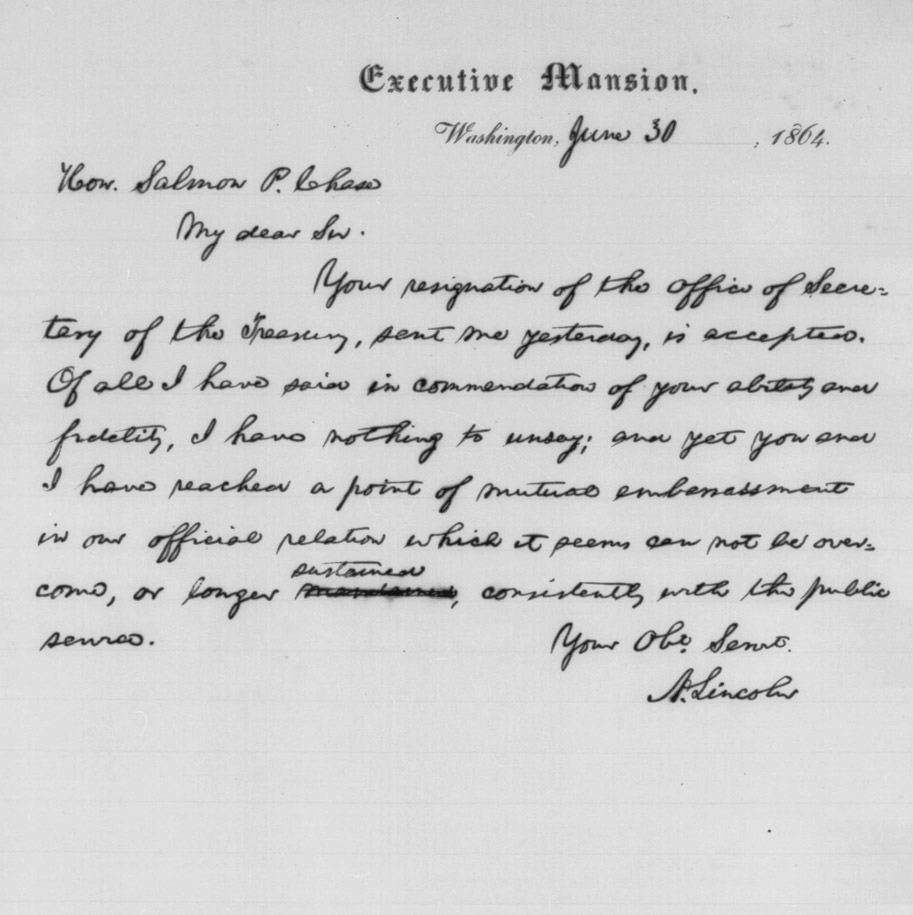 Executive Mansion,
Washington, June 30, 1864.
Hon. Salmon P. Chase
My dear Sir.
Your resignation of the office of Secre=
tary of the Treasury, sent me yesterday, is accepted.
Of all I have said in commendation of your ability and
fidelity, I have nothing to unsay; and yet you and
I have reached a point of mutual embarrassment
in our official relation which it seems can not be over=
sustained
come, or longer maintained, consistently with the public
service.
Your Obt. Servt.
A. Lincoln